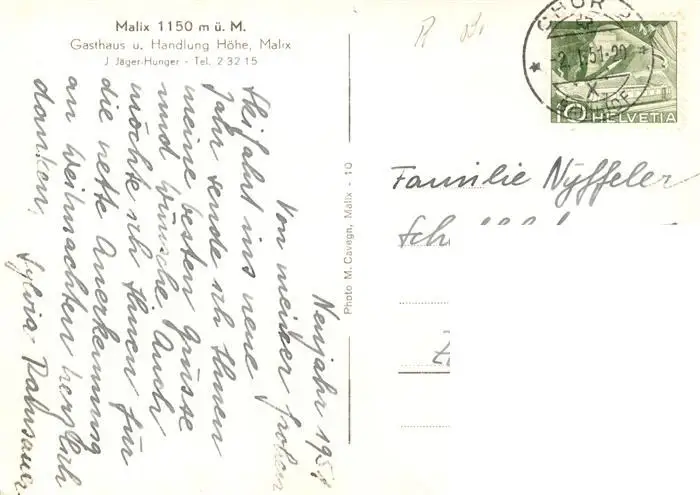 Malix 1150 m ü. M.
Gasthaus u. Handlung Höhe, Malix
J. Jäger-Hunger - Tel. 2 32 15
Neujahr 1951
Von meiner frohen
Skifahrt ins neue
Jahr sende ich Ihnen
meine besten Grüsse
und Wünsche. Auch
möchte ich Ihnen für
die nette Anerkennung
an Weihnachten herzlich
danken,
Sylvia
Photo M. Cavegn, Malix - 10
CHUR 2
2. I. 51-20
10 HELVETIA
Familie Nyffeler